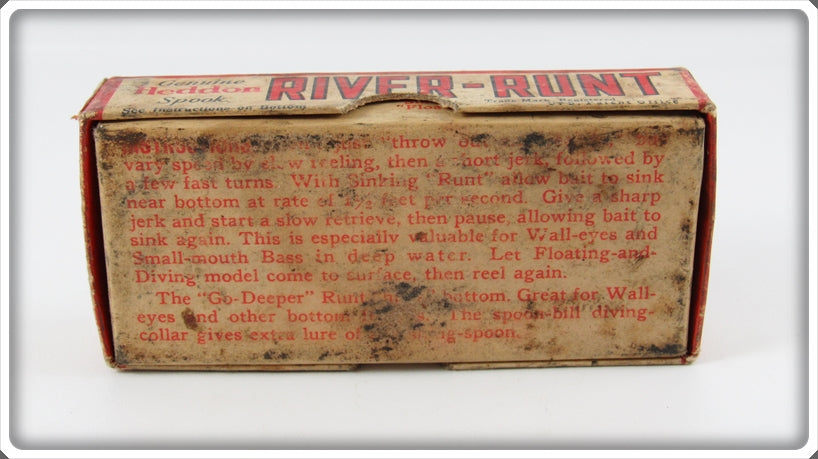 Genuine
Heddon RIVER-RUNT
Spook
See Instructions on Bottom
Trade Mark Registered
throw out
vary speed by slow reeling, then a short jerk, followed by
a few fast turns. With Sinking "Runt" allow bait to sink
near bottom at rate of feet per second. Give a sharp
jerk and start a slow retrieve, then pause, allowing bait to
sink again. This is especially valuable for Wall-eyes and
Small-mouth Bass in deep water. Let Floating-and-
Diving model come to surface, then reel again.
The "Go-Deeper" Runt bottom. Great for Wall-
eyes and other bottom The spoon-bill diving-
collar gives extra lure of